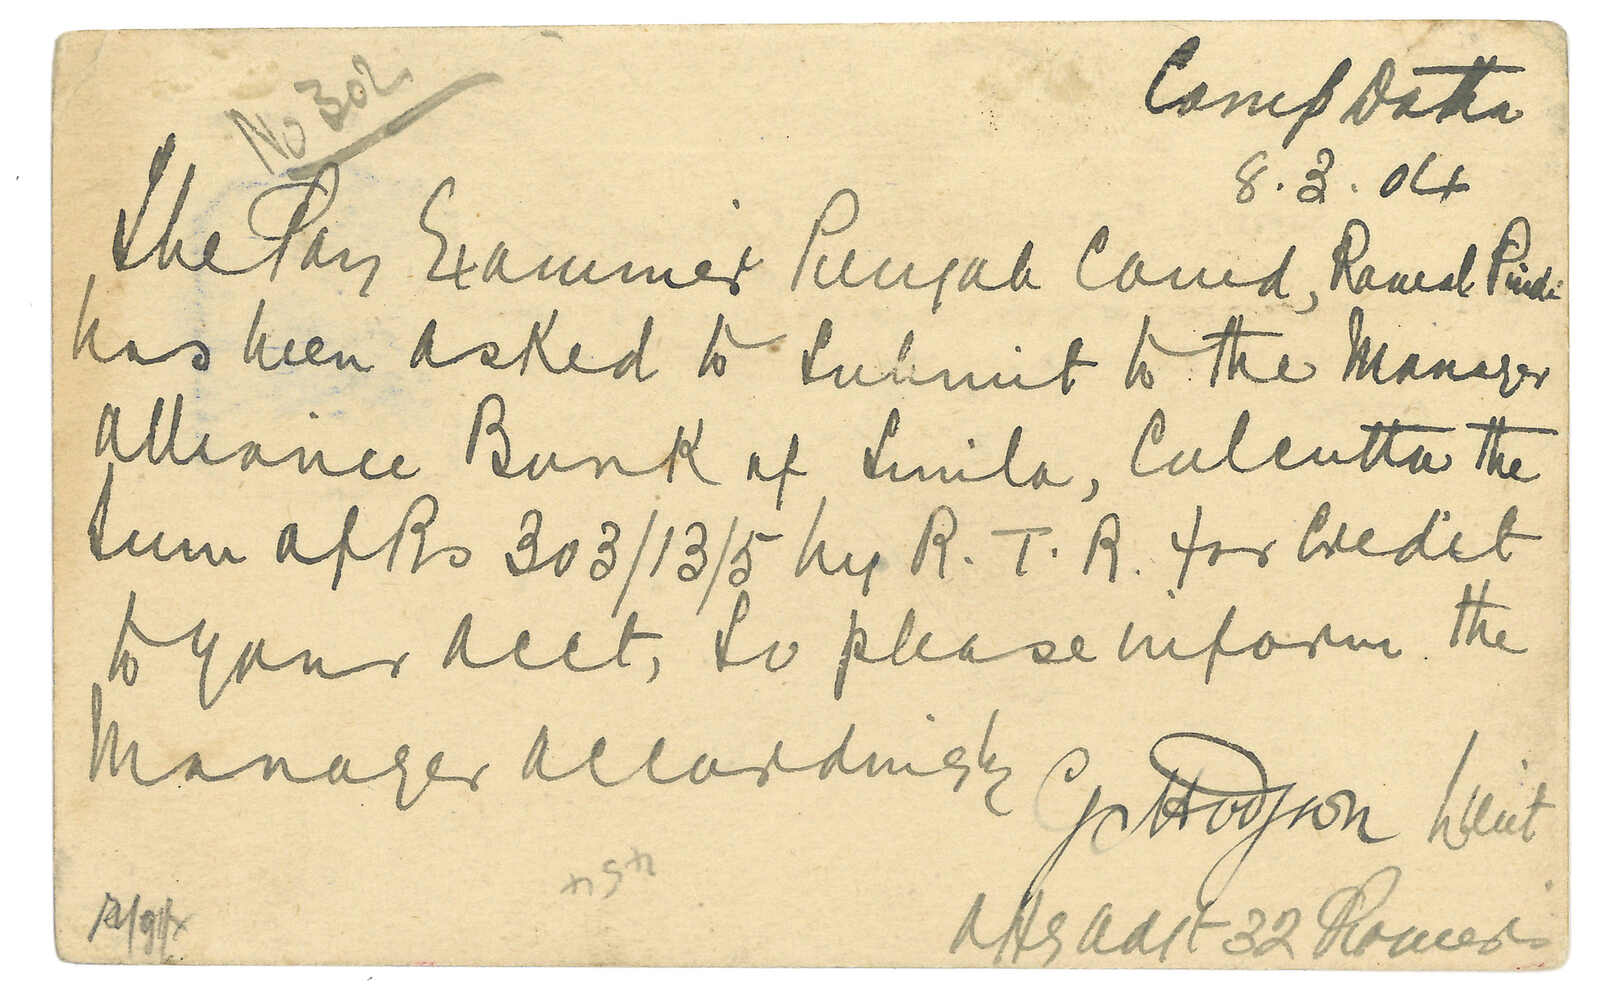 No 302
Camp Datta
8.3.04
The Pay Examiner Punjab Comd, Rawal Pindi
has been asked to submit to the Manager
Alliance Bank of Simla, Calcutta the
sum of Rs 303/13/5 by R.T.R. for credit
to your acct, so please inform the
Manager accordingly
Hodgson Lieut
Offg Adjt 32 Pioneers